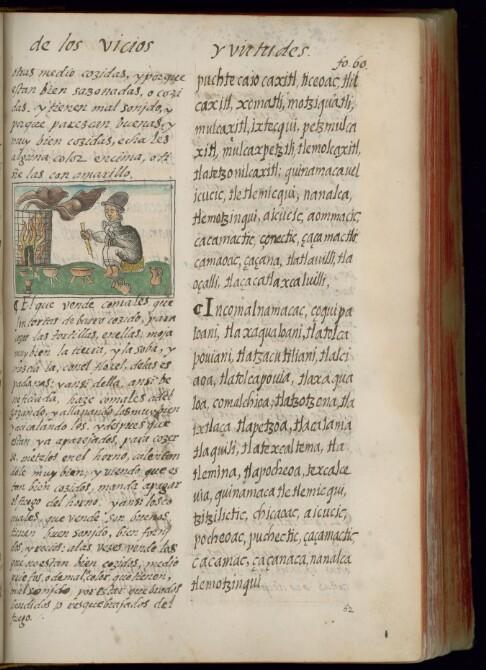 de los vicios
y virtudes.
fo. 60
otras medio cozidas, y porque
estan bien sazonadas, o cozi
das. y tienen mal sonido, y
paque parezcan buenas, y
muy bien cozidas, echales
alguna color encima, o ti
ñe las con amarillo.
El que vende comales que
son tortas de barro cozido, para
cozer las tortillas, en ellas: moja
muy bien la tierra, y la soba, y
mezcla la, con el flojel, de las es
padañas: y ansi della, ansi be
neficiada, haze comales adel
gazando, y allanando las muy bien
y acicalando los. y despues que
estan, ya aparejados, para cozer
se, metelos en el horno, calentan
dole muy bien: y viendo, que es
tan bien cozidos, manda apagar
el fuego del horno. y ansi los co
males, que vende son buenos
tienen buen sonido, bien forni
dos, y recios: alas vezes vende los
que, no estan bien cozidos, medio
quietos, o de mal color, que tienen,
mal sonido, por estar quebrados
hendidos o resquebrajados del
fuego.
puchtecaio caxitl, ticeoac, tlil
caxitl, xcmatli, motziquatli,
mulcaxitl, ixtecqui, petzmulca
xitl, mulcaxpetztli, tlemolcaxitl,
tlatetzonilcaxitl: quinamaca vel
icucic, tletlemicqui, nanalca,
tlemotzinqui, aicucic, aommacic
cacamactic, çonectic, çaçamactic
camaoac, çaçana, tlatlavilli, tla
oçalli, tlaçacatlaxcaluilli,
Incomalnamacac, coquipa
loani, tlaxaqualoani, tlatolca
pouiani, tlatzacutiliani, tlalci
aoa, tlatolcapouia, tlaxaqua
loa, comalchioa, tlatzotzona, tla
ixtlaca, tlapetzoa, tlacatania
tlaquili, tlatexcaltema, tla
tlemina, tlapocheoa, texcalce
uia, quinamaca tletlemicqui,
tzitzilictic, chicaoac, aicucic,
pocheoac, puchectic, çaçamactic
cacamac, çaçanaca, nanalca
tlemotzinqui
62